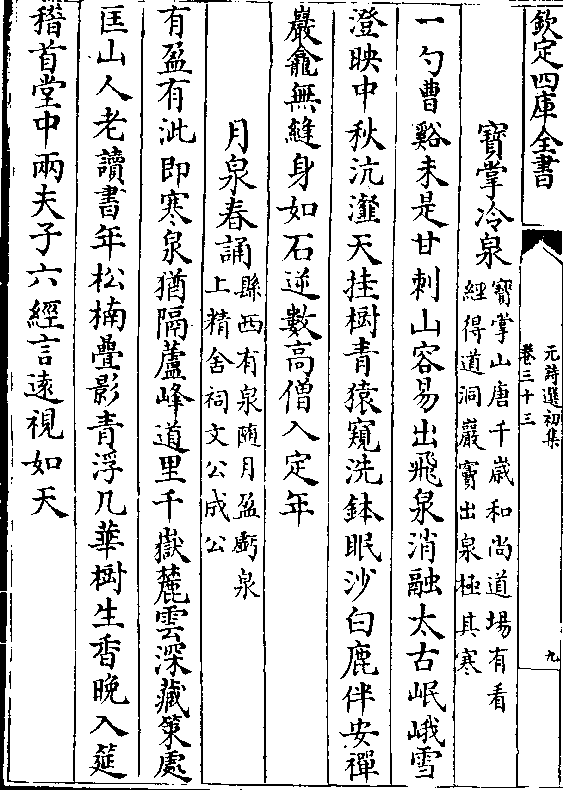 欽定四庫全書
元詩選初集
卷三十三
九
寶掌冷泉
寶掌山唐千歲和尚道場有看
經得道洞巖竇出泉極其寒
一勺曹谿未是甘刺山容易出飛泉消融太古岷峨雪
澄映中秋沆瀣天挂樹青猿窺洗鉢眠沙白鹿伴安禪
巖龕無縫身如石逆數高僧入定年
月泉春誦
縣西有泉隨月盈虧泉
上精舍祠文公成公
有盈有泚即寒泉猶隔蘆峰道里千嶽麓雲深藏䇿處
匡山人老讀書年松楠疊影青浮几華樹生香晚入筵
稽首堂中兩夫子六經言遠視如天